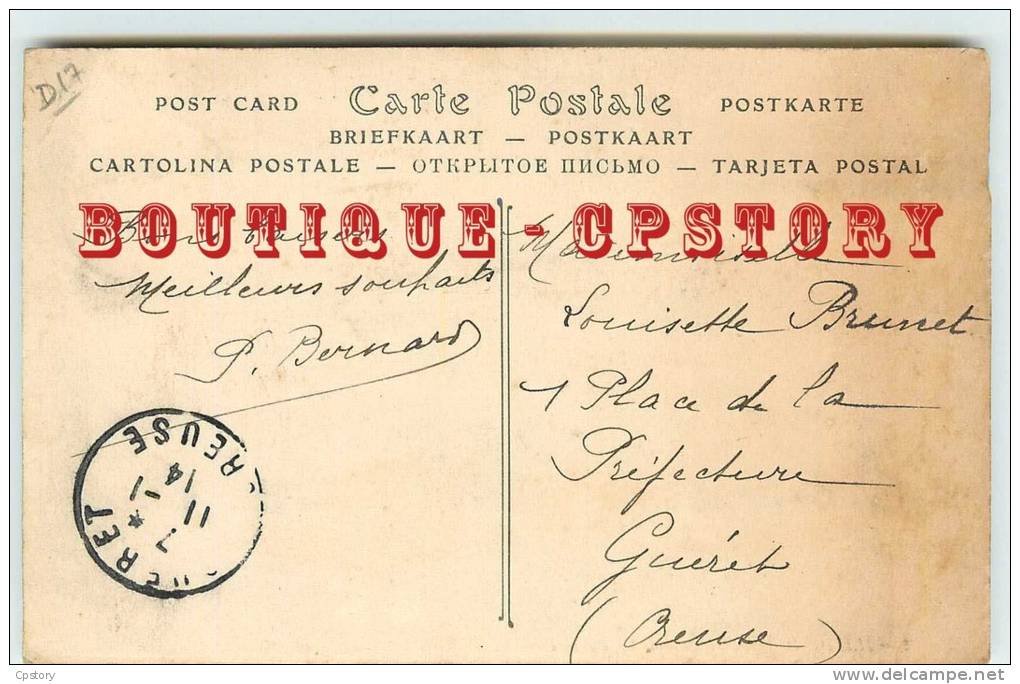 D.17
POST CARD Carte Postale POSTKARTE
BRIEFKAART — POSTKAART
CARTOLINA POSTALE — ОТКРЫТОЕ ПИСЬМО — TARJETA POSTAL
BOUTIQUE - CPSTORY
Bons baisers
Meilleurs souhaits
P. Bernard
Mademoiselle
Louisette Brunet
1 Place de la
Préfecture
Guéret
(Creuse)
CREUSE
7 * 
11 - 1
14
GUERET
Cpstory
www.delcampe.net